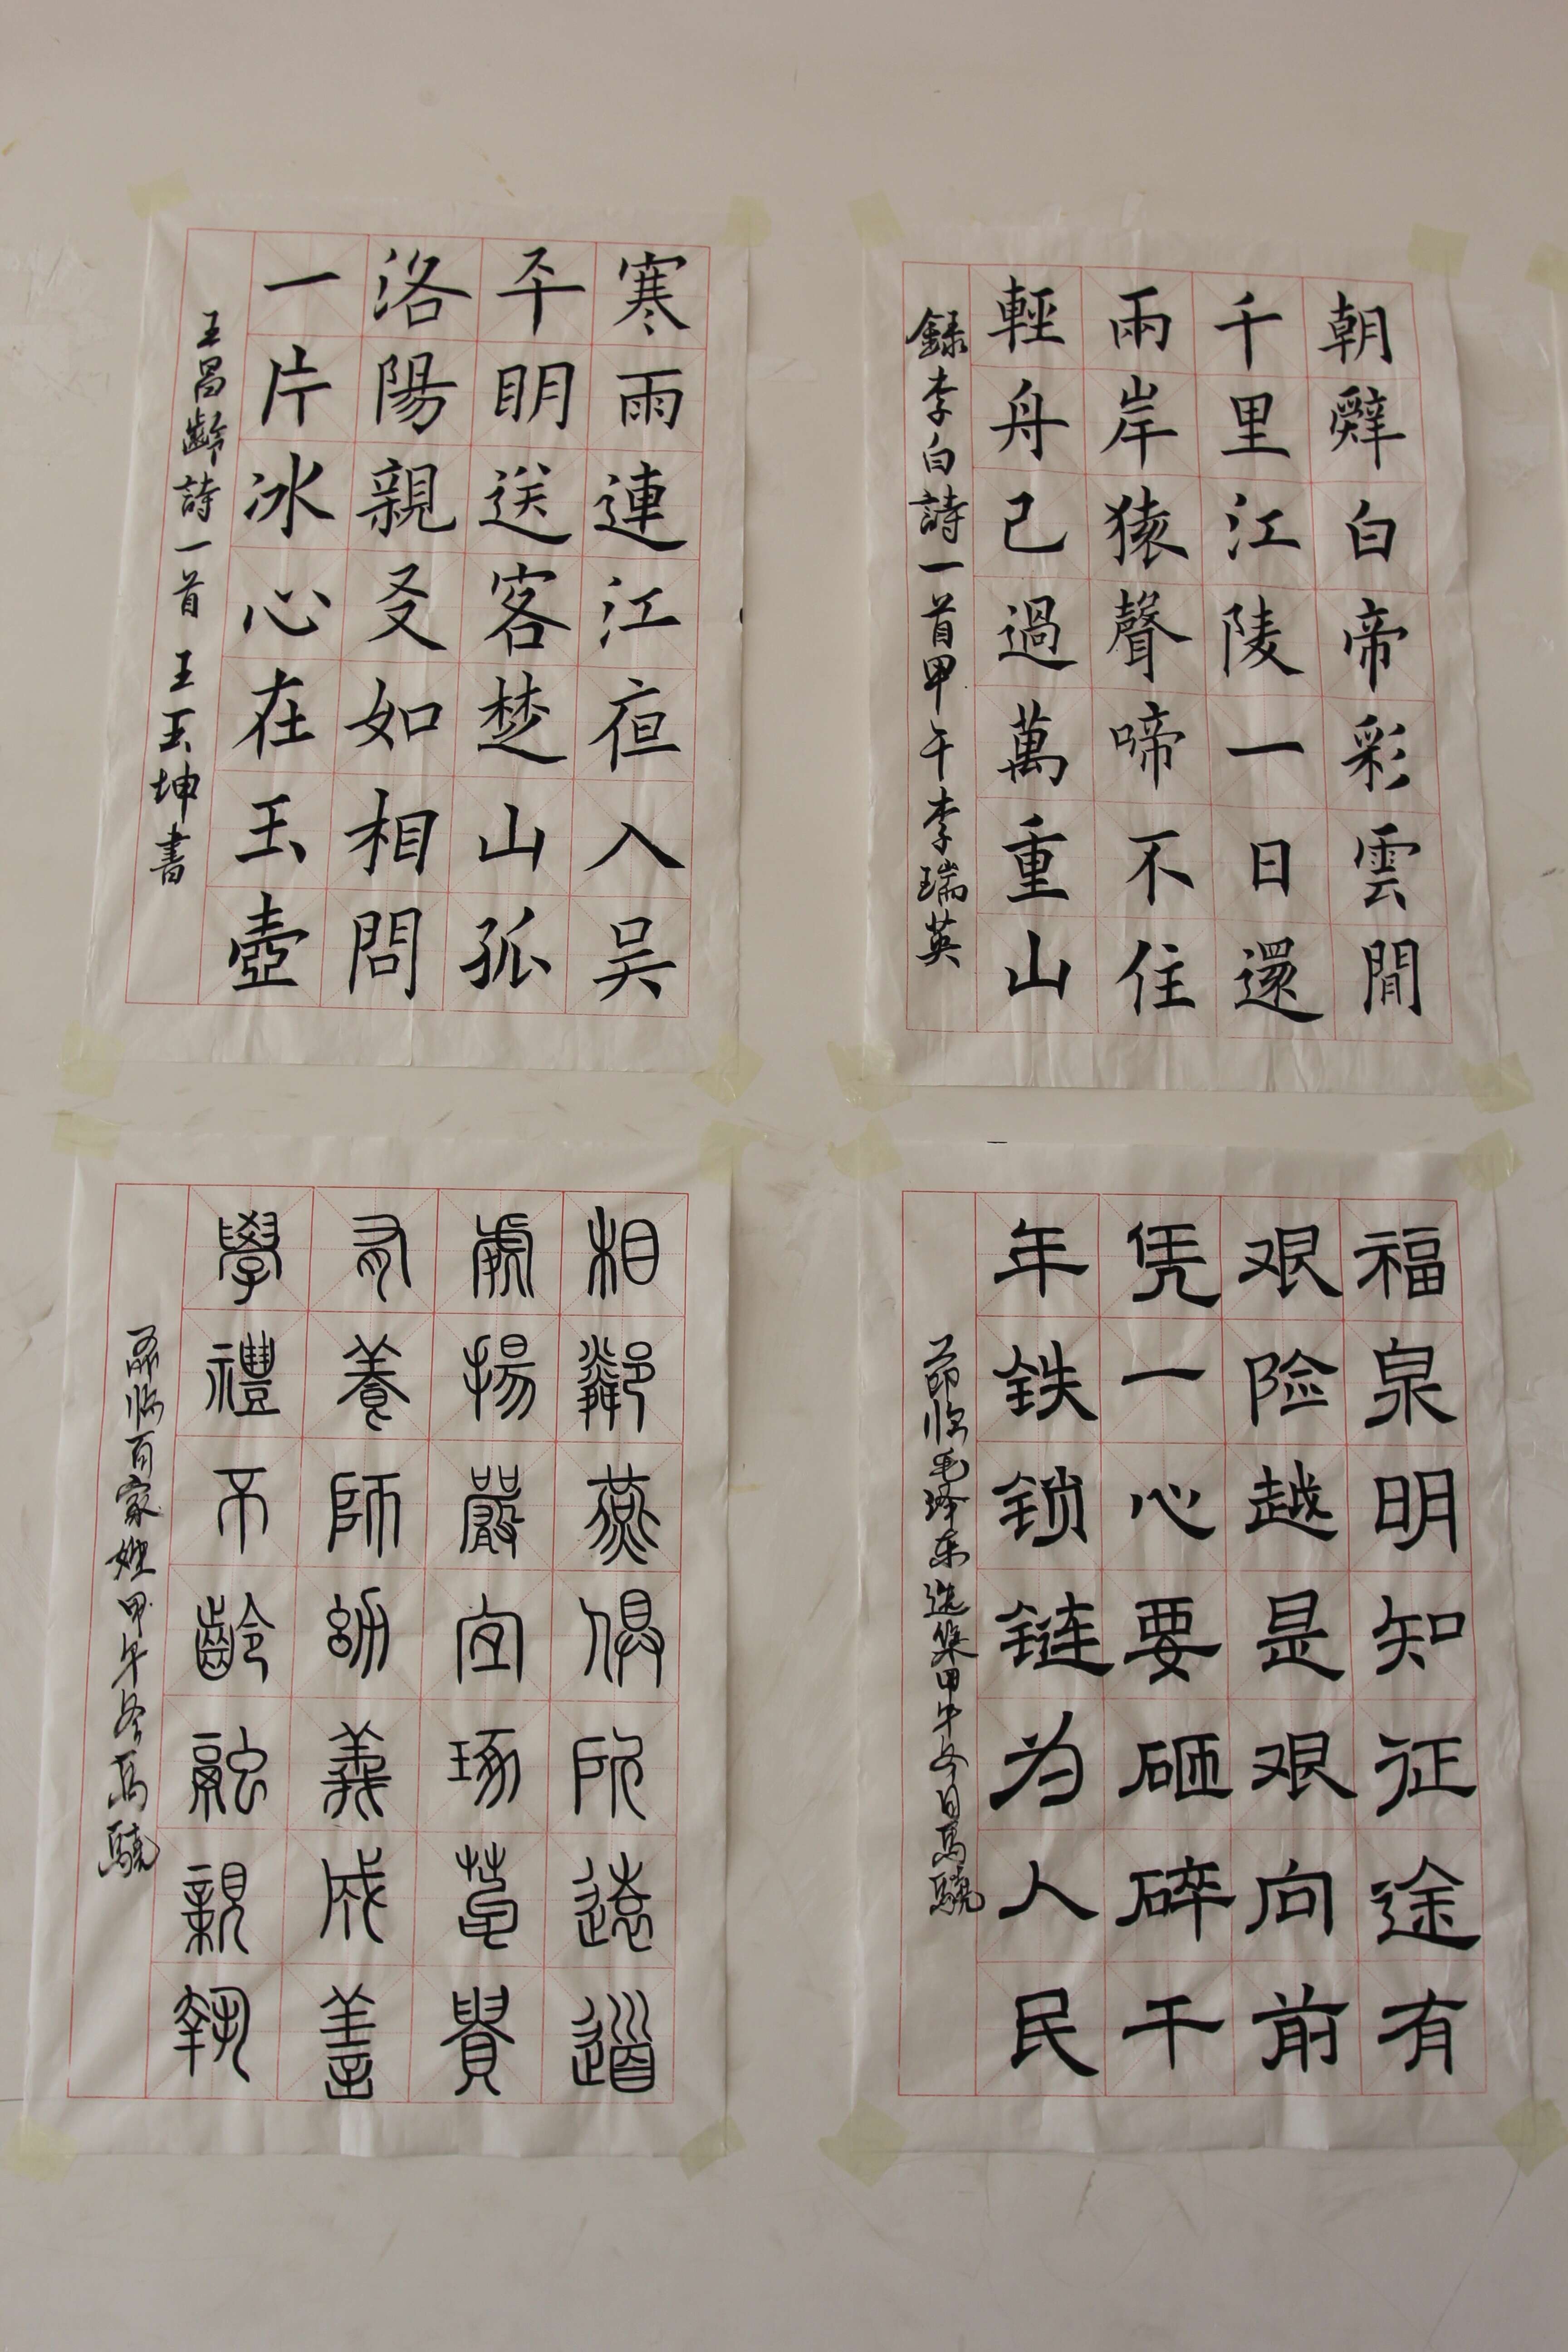 朝辭白帝彩雲間
千里江陵一日還
兩岸猿聲啼不住
輕舟已過萬重山
録李白詩一首甲午李瑞英
寒雨連江夜入吴
平明送客楚山孤
洛陽親友如相問
一片冰心在玉壺
王昌齡詩一首 王玉坤書
福泉明知征途有
艰险越是艰向前
凭一心要砸碎千
年铁锁链为人民
節临毛泽东选集甲午冬日馬驍
相鄰燕俱遠道
處揚嚴宜琢
友養師幼義成善
學禮不齡融親執
節临百家姓甲午冬馬驍